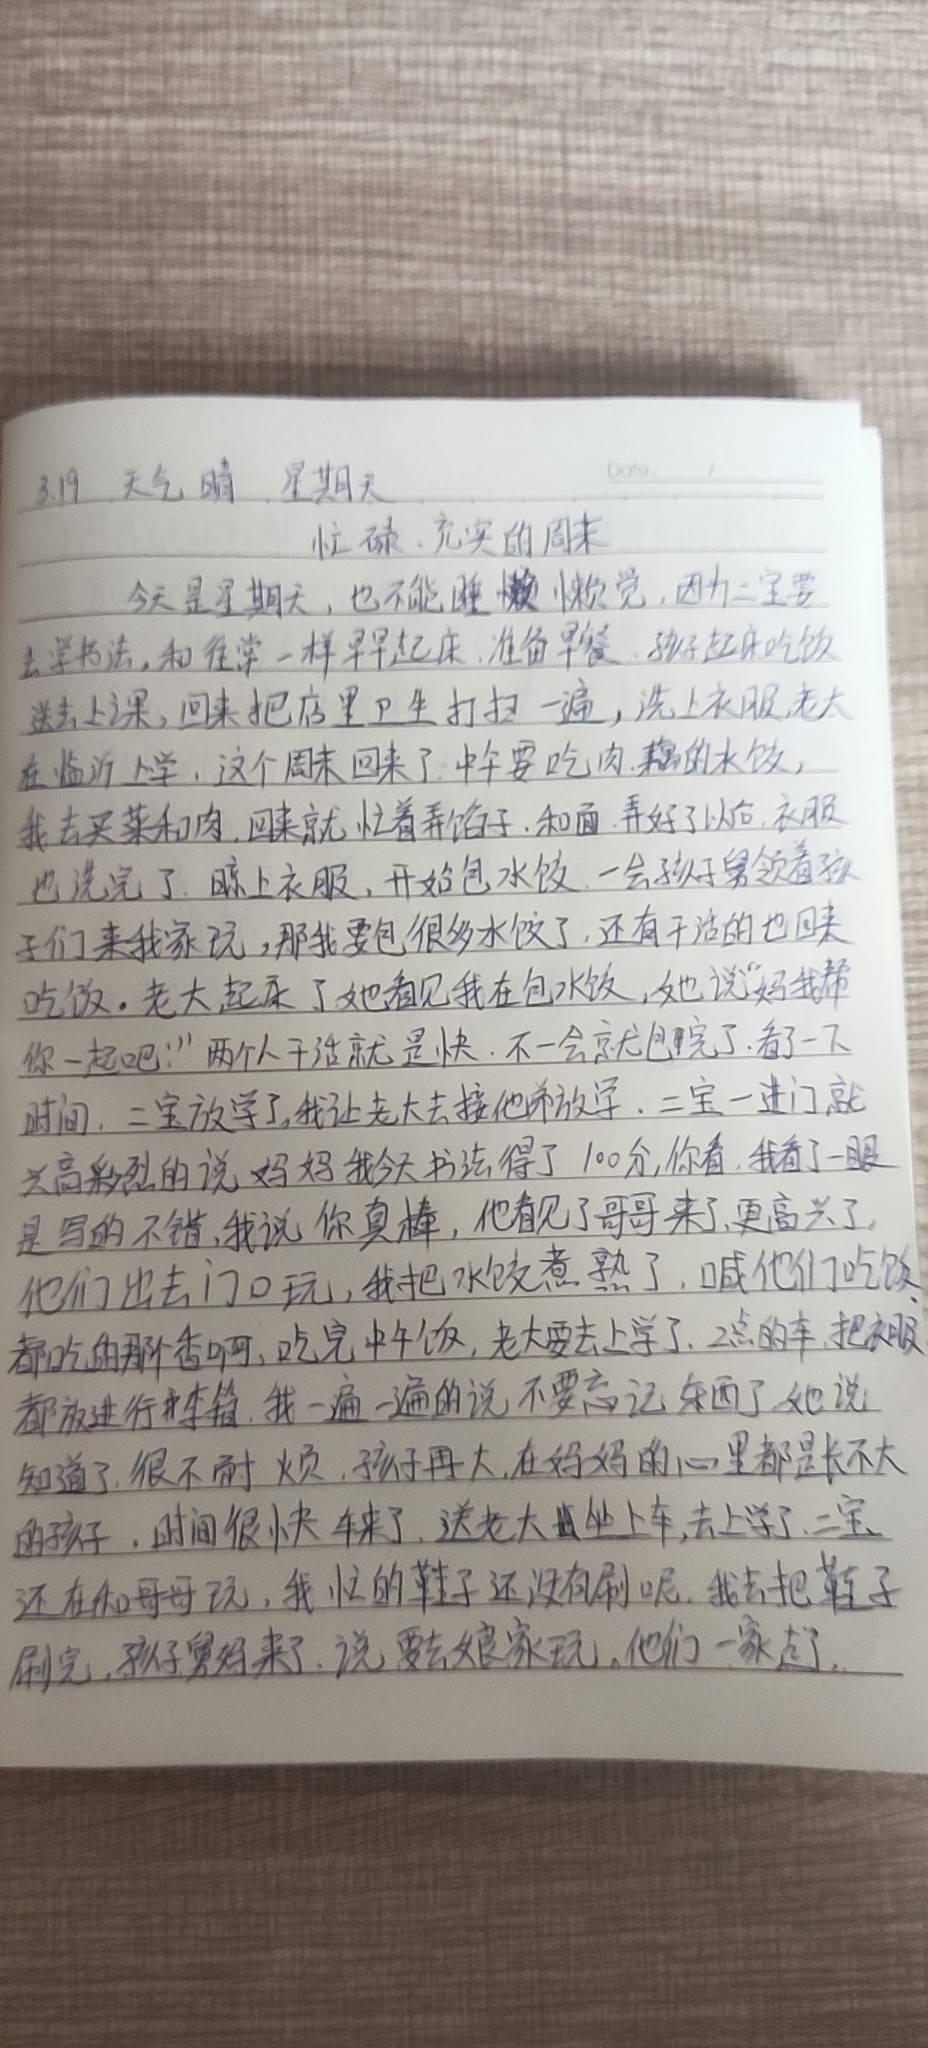 3.19 天气晴 星期天
Date /
忙碌、充实的周末
今天是星期天，也不能睡懒觉，因为二宝要
去学书法，和往常一样早早起床、准备早餐、孩子起床吃饭
送去上课，回来把店里卫生打扫一遍，洗上衣服，老大
在临沂上学，这个周末回来了，中午要吃肉、藕的水饺，
我去买菜和肉，回来就忙着弄馅子、和面、弄好了以后，衣服
也洗完了，晾上衣服，开始包水饺，一会孩子舅领着孩
子们来我家玩，那我要包很多水饺了，还有干活的也回来
吃饭。老大起床了她看见我在包水饺，她说“妈我帮
你一起吧！”两个人干活就是快，不一会就包完了，看了一下
时间，二宝放学了，我让老大去接他弟放学，二宝一进门就
兴高彩烈的说妈妈我今天书法得了100分，你看，我看了一眼
是写的不错，我说你真棒，他看见了哥哥来了，更高兴了，
他们出去门口玩，我把水饺煮熟了，喊他们吃饭，
都吃的那个香啊，吃完中午饭，老大要去上学了，2点的车，把衣服
都放进行李箱，我一遍一遍的说不要忘记东西了，她说
知道了，很不耐烦，孩子再大，在妈妈的心里都是长不大
的孩子，时间很快车来了，送老大坐上车，去上学了，二宝
还在和哥哥玩，我忙的鞋子还没有刷呢，我去把鞋子
刷完，孩子舅妈来了，说要去娘家玩，他们一家走了，